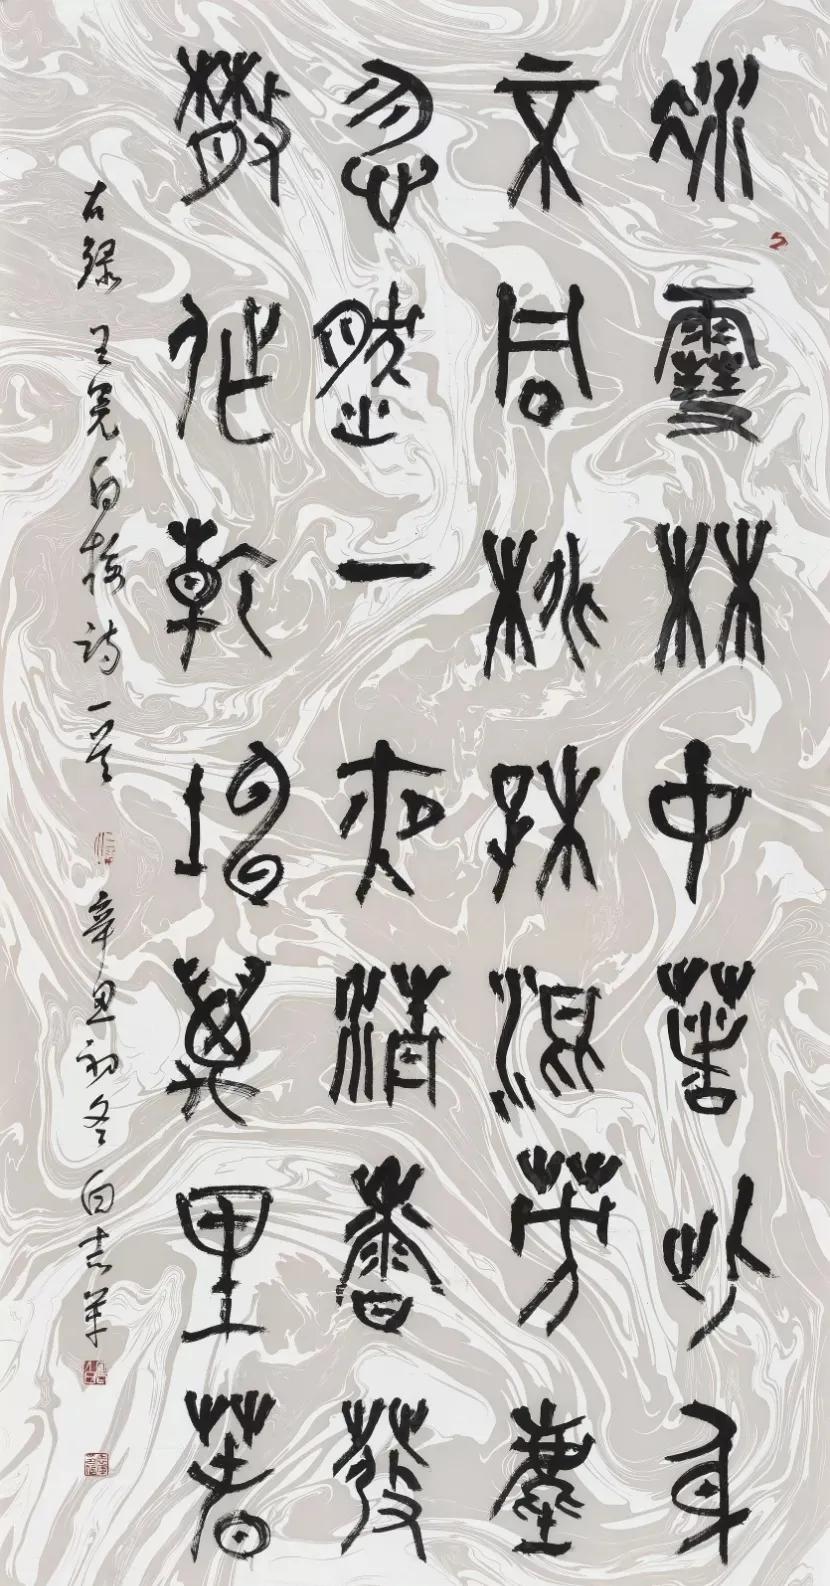 冰雪林中著此身
不同桃李混芳塵
忽然一夜清香發
散作乾坤萬里春
右录王冕白梅诗一首 辛丑初冬白志